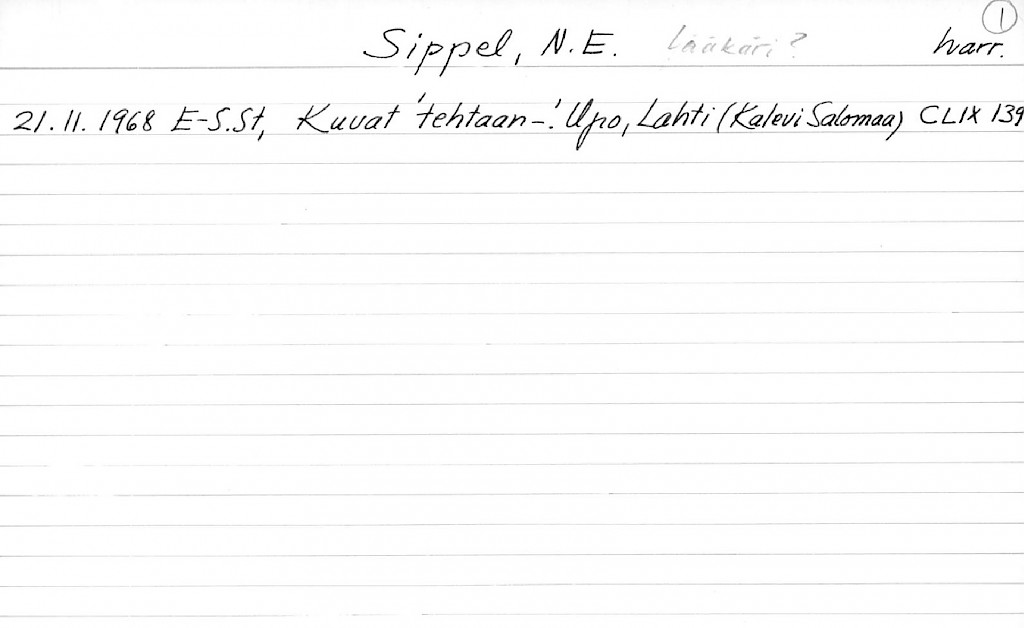 1
Sippel, N.E. Lääkäri? harr.
21.11.1968 E-S.St, Kuvat 'tehtaan-'. Upo, Lahti (Kalevi Salomaa) CLIX 139